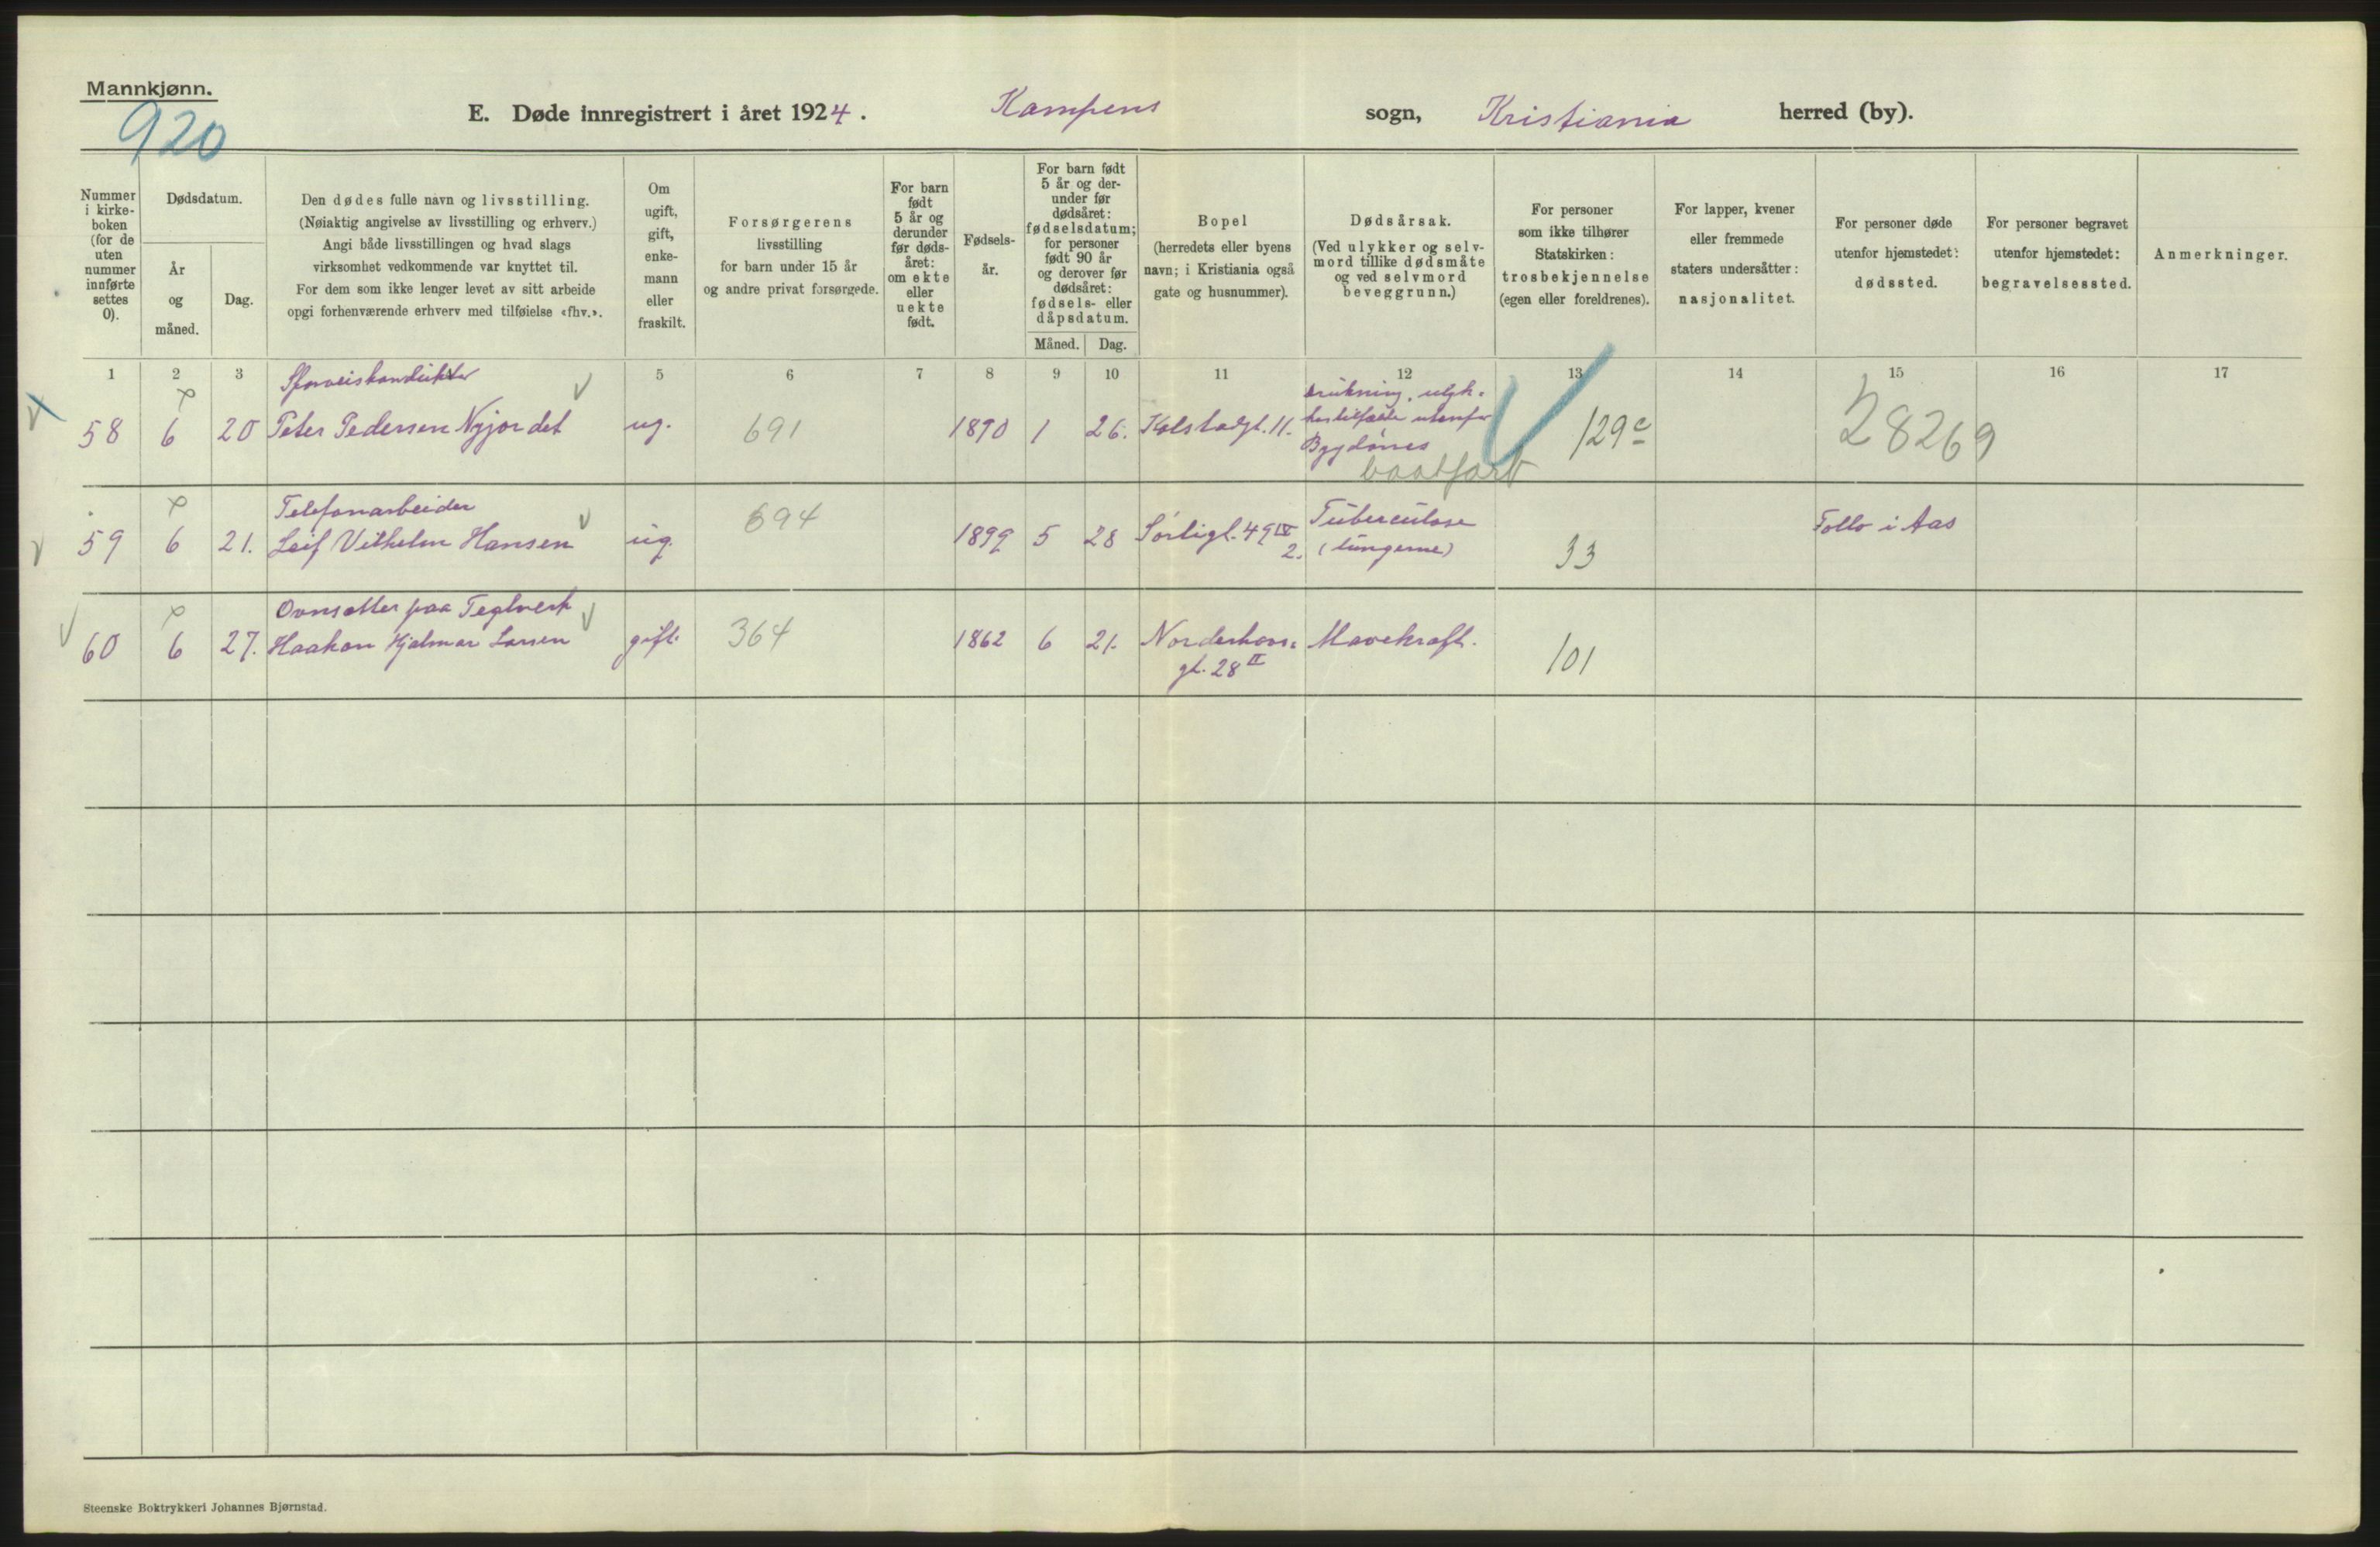 Mannkjønn.
920
E. Døde innregistrert i året 1924. Kampens sogn, Kristiania herred (by).
Nummer
i kirke-
boken
(for de
uten
nummer
innførte
settes
0).
Dødsdatum.
År
og
måned.
Dag.
Den dødes fulle navn og livsstilling.
(Nøiaktig angivelse av livsstilling og erhverv.)
Angi både livsstillingen og hvad slags
virksomhet vedkommende var knyttet til.
For dem som ikke lenger levet av sitt arbeide
opgi forhenværende erhverv med tilføielse «fhv.».
Om
ugift,
gift,
enke-
mann
eller
fraskilt.
Forsørgerens
livsstilling
for barn under 15 år
og andre privat forsørgede.
For barn
født
5 år og
derunder
før døds-
året:
om ekte
eller
uekte
født.
Fødsels-
år.
For barn født
5 år og der-
under før
dødsåret:
fødselsdatum;
for personer
født 90 år
og derover før
dødsåret:
fødsels- eller
dåpsdatum.
Måned. Dag.
Bopel
(herredets eller byens
navn; i Kristiania også
gate og husnummer).
Dødsårsak.
(Ved ulykker og selv-
mord tillike dødsmåte
og ved selvmord
beveggrunn.)
For personer
som ikke tilhører
Statskirken:
trosbekjennelse
(egen eller foreldrenes).
For lapper, kvener
eller fremmede
staters undersåtter:
nasjonalitet.
For personer døde
utenfor hjemstedet:
dødssted.
For personer begravet
utenfor hjemstedet:
begravelsessted.
Anmerkninger.
1 2 3 5 6 7 8 9 10 11 12 13 14 15 16 17
Sporveiskonduktør
58 6 20 Peter Pedersen Nyjordet ug. 691 1890 1 26. Kolstadgt. 11.
drukning, ulyk-
kestilfælde utenfor
Bygdönes
baatfart
129c
28269
Telefonarbeider
59 6 21. Leif Vilhelm Hansen ug. 694 1899 5 28 Sørligt. 49 IV
2.
Tuberculose
(lungerne)
33
Follo i Aas
Ovnsætter paa Teglverk
60 6 27. Haakon Hjalmar Larsen gift. 364 1862 6 21. Norderhovs-
gt. 28 II
Mavekræft.
101
Steenske Boktrykkeri Johannes Bjørnstad.